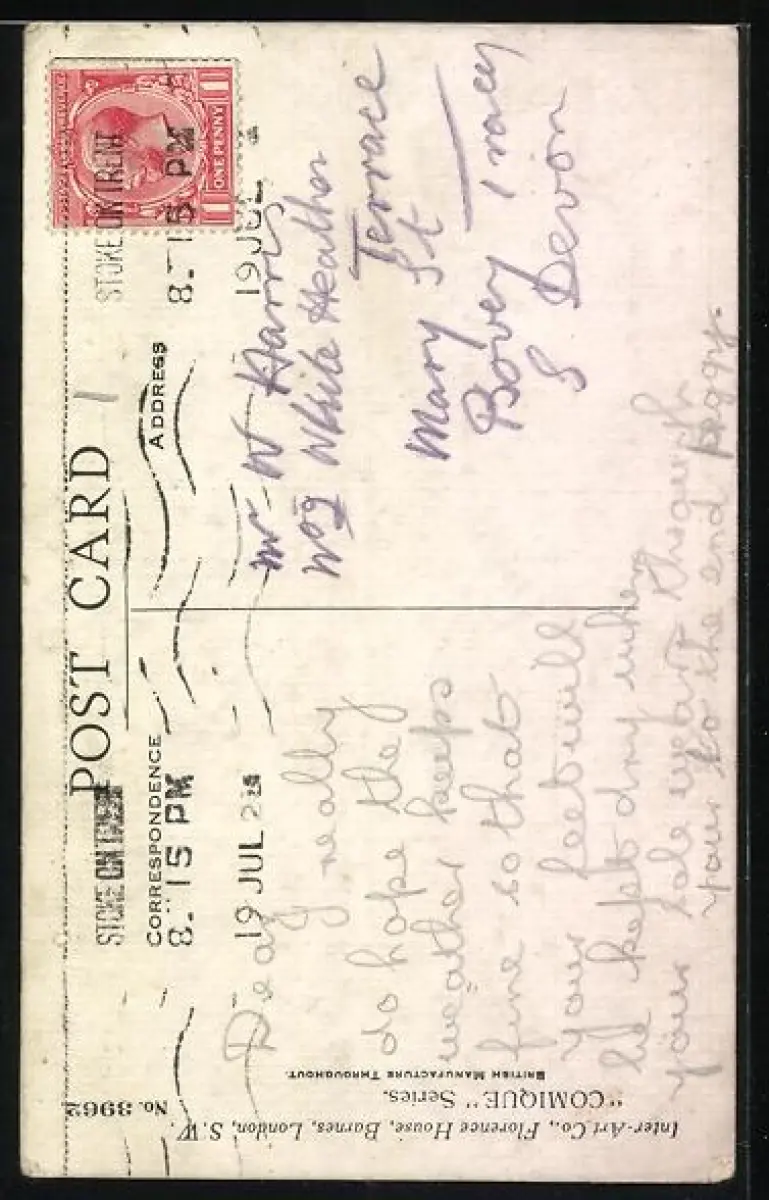 POST CARD
STOKE ON TRENT
8.15 PM
19 JUL
STOKE ON TRENT
8.15 PM
19 JUL
ONE PENNY
1 1
CORRESPONDENCE
ADDRESS
Dear
I really
do hope the
weather keeps
fine so that
your feet will
be kept dry when
your sole wears through
your to the end Peggy.
Mr W Harris
White Heather
Terrace
Mary St
Bovey Tracey
S Devon
Inter-Art Co., Florence House, Barnes, London, S.W.
"COMIQUE" Series.
BRITISH MANUFACTURE THROUGHOUT.
No. 3962